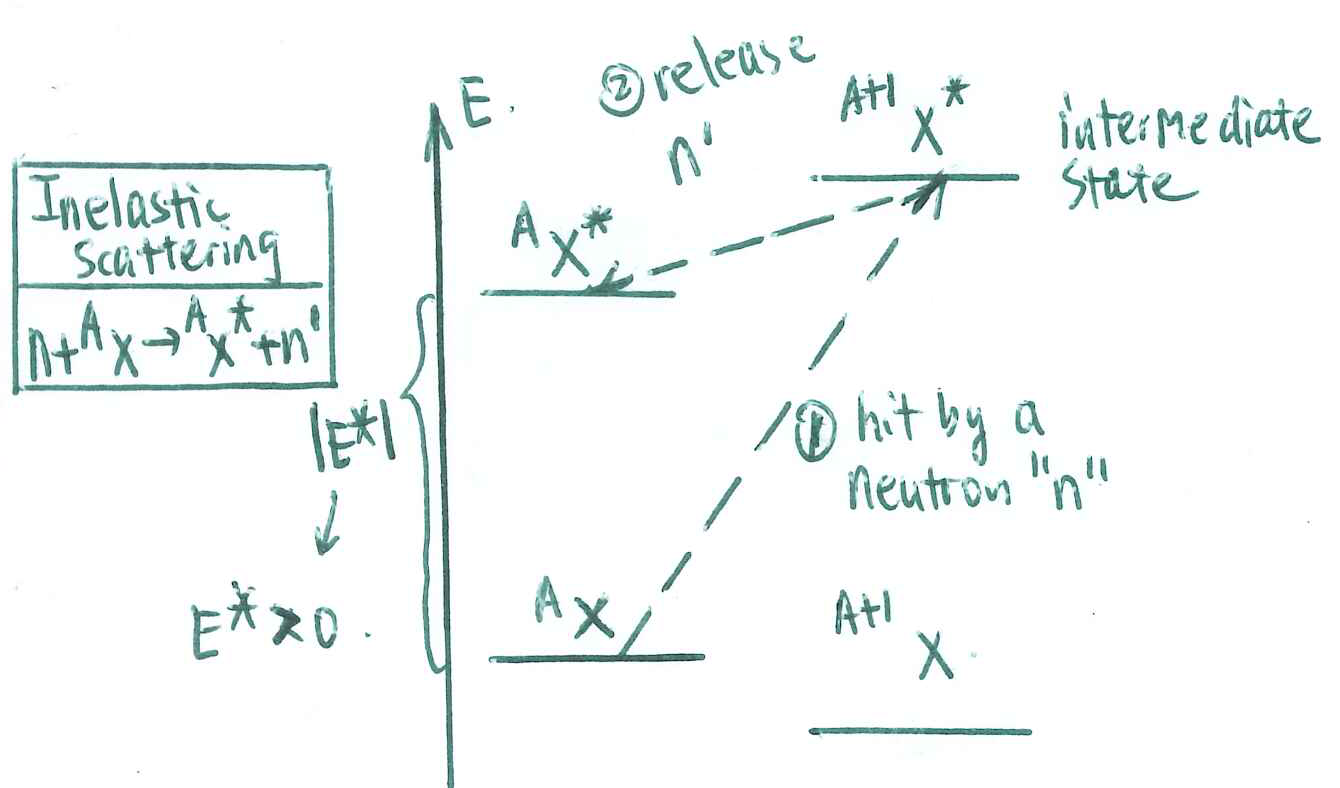 Inelastic
Scattering
n+ᴬX→ᴬX*+n'
|E*|
↓
E*>0.
E.
② release
n'
ᴬ⁺¹X*
intermediate
state
ᴬX*
① hit by a
neutron "n"
ᴬX
ᴬ⁺¹X